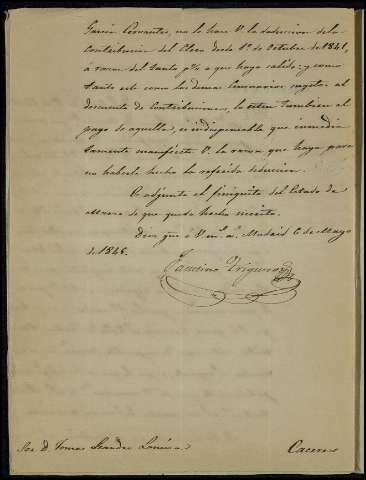 Garcia Cervantes, no le hace V. la deduccion de la
Contribucion del Clero desde 1º de Octubre de 1841,
á razon del tanto p% a que haya salido; y como
tanto este como los demas Censuarios sugetos al
descuento de Contribuciones, lo esten tambien al
pago de aquella, es indispensable que inmedia
tamente manifieste V. la razon que haya para
no haberle hecho la referida deduccion.
Es adjunto el finiquito del Estado de
de que queda hecho mérito.
Dios gue á V. m.s a.s Madrid 6 de Mayo
de 1845.
Faustino Trigueros
Sor. D. Tomas
Caceres